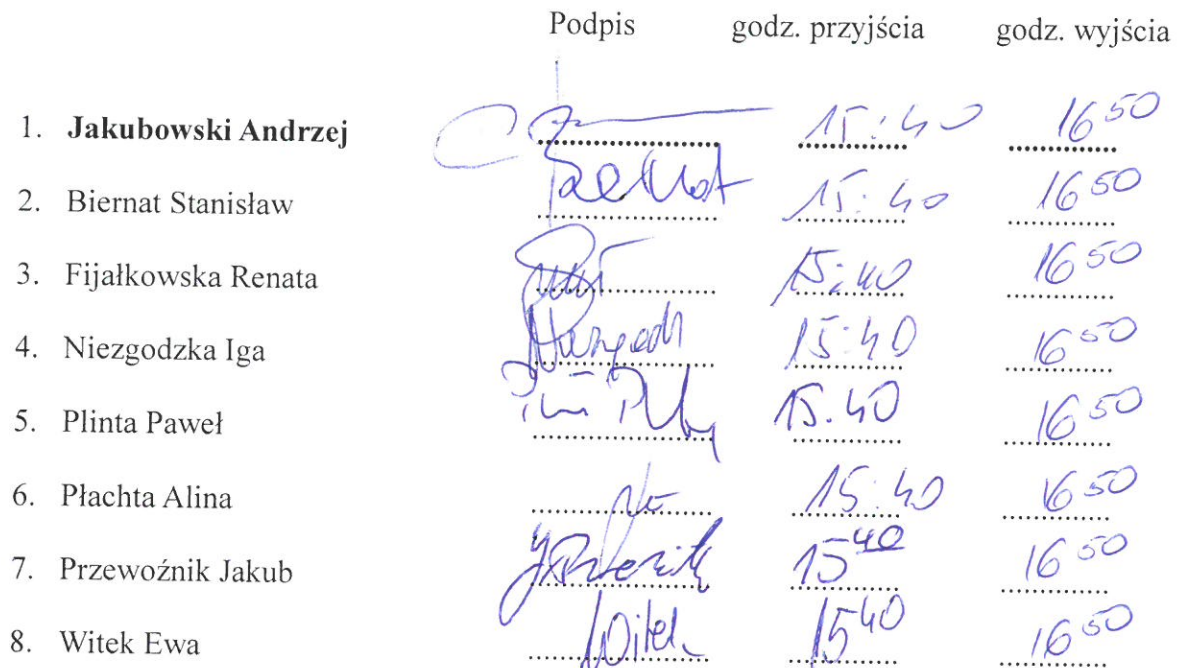 Podpis godz. przyjścia godz. wyjścia
1. Jakubowski Andrzej 15:40 16 50
2. Biernat Stanisław 15:40 16 50
3. Fijałkowska Renata 15:40 16 50
4. Niezgodzka Iga 15:40 16 50
5. Plinta Paweł 15.40 16 50
6. Płachta Alina 15:40 16 50
7. Przewoźnik Jakub 15 40 16 50
8. Witek Ewa Witek 15 40 16 50